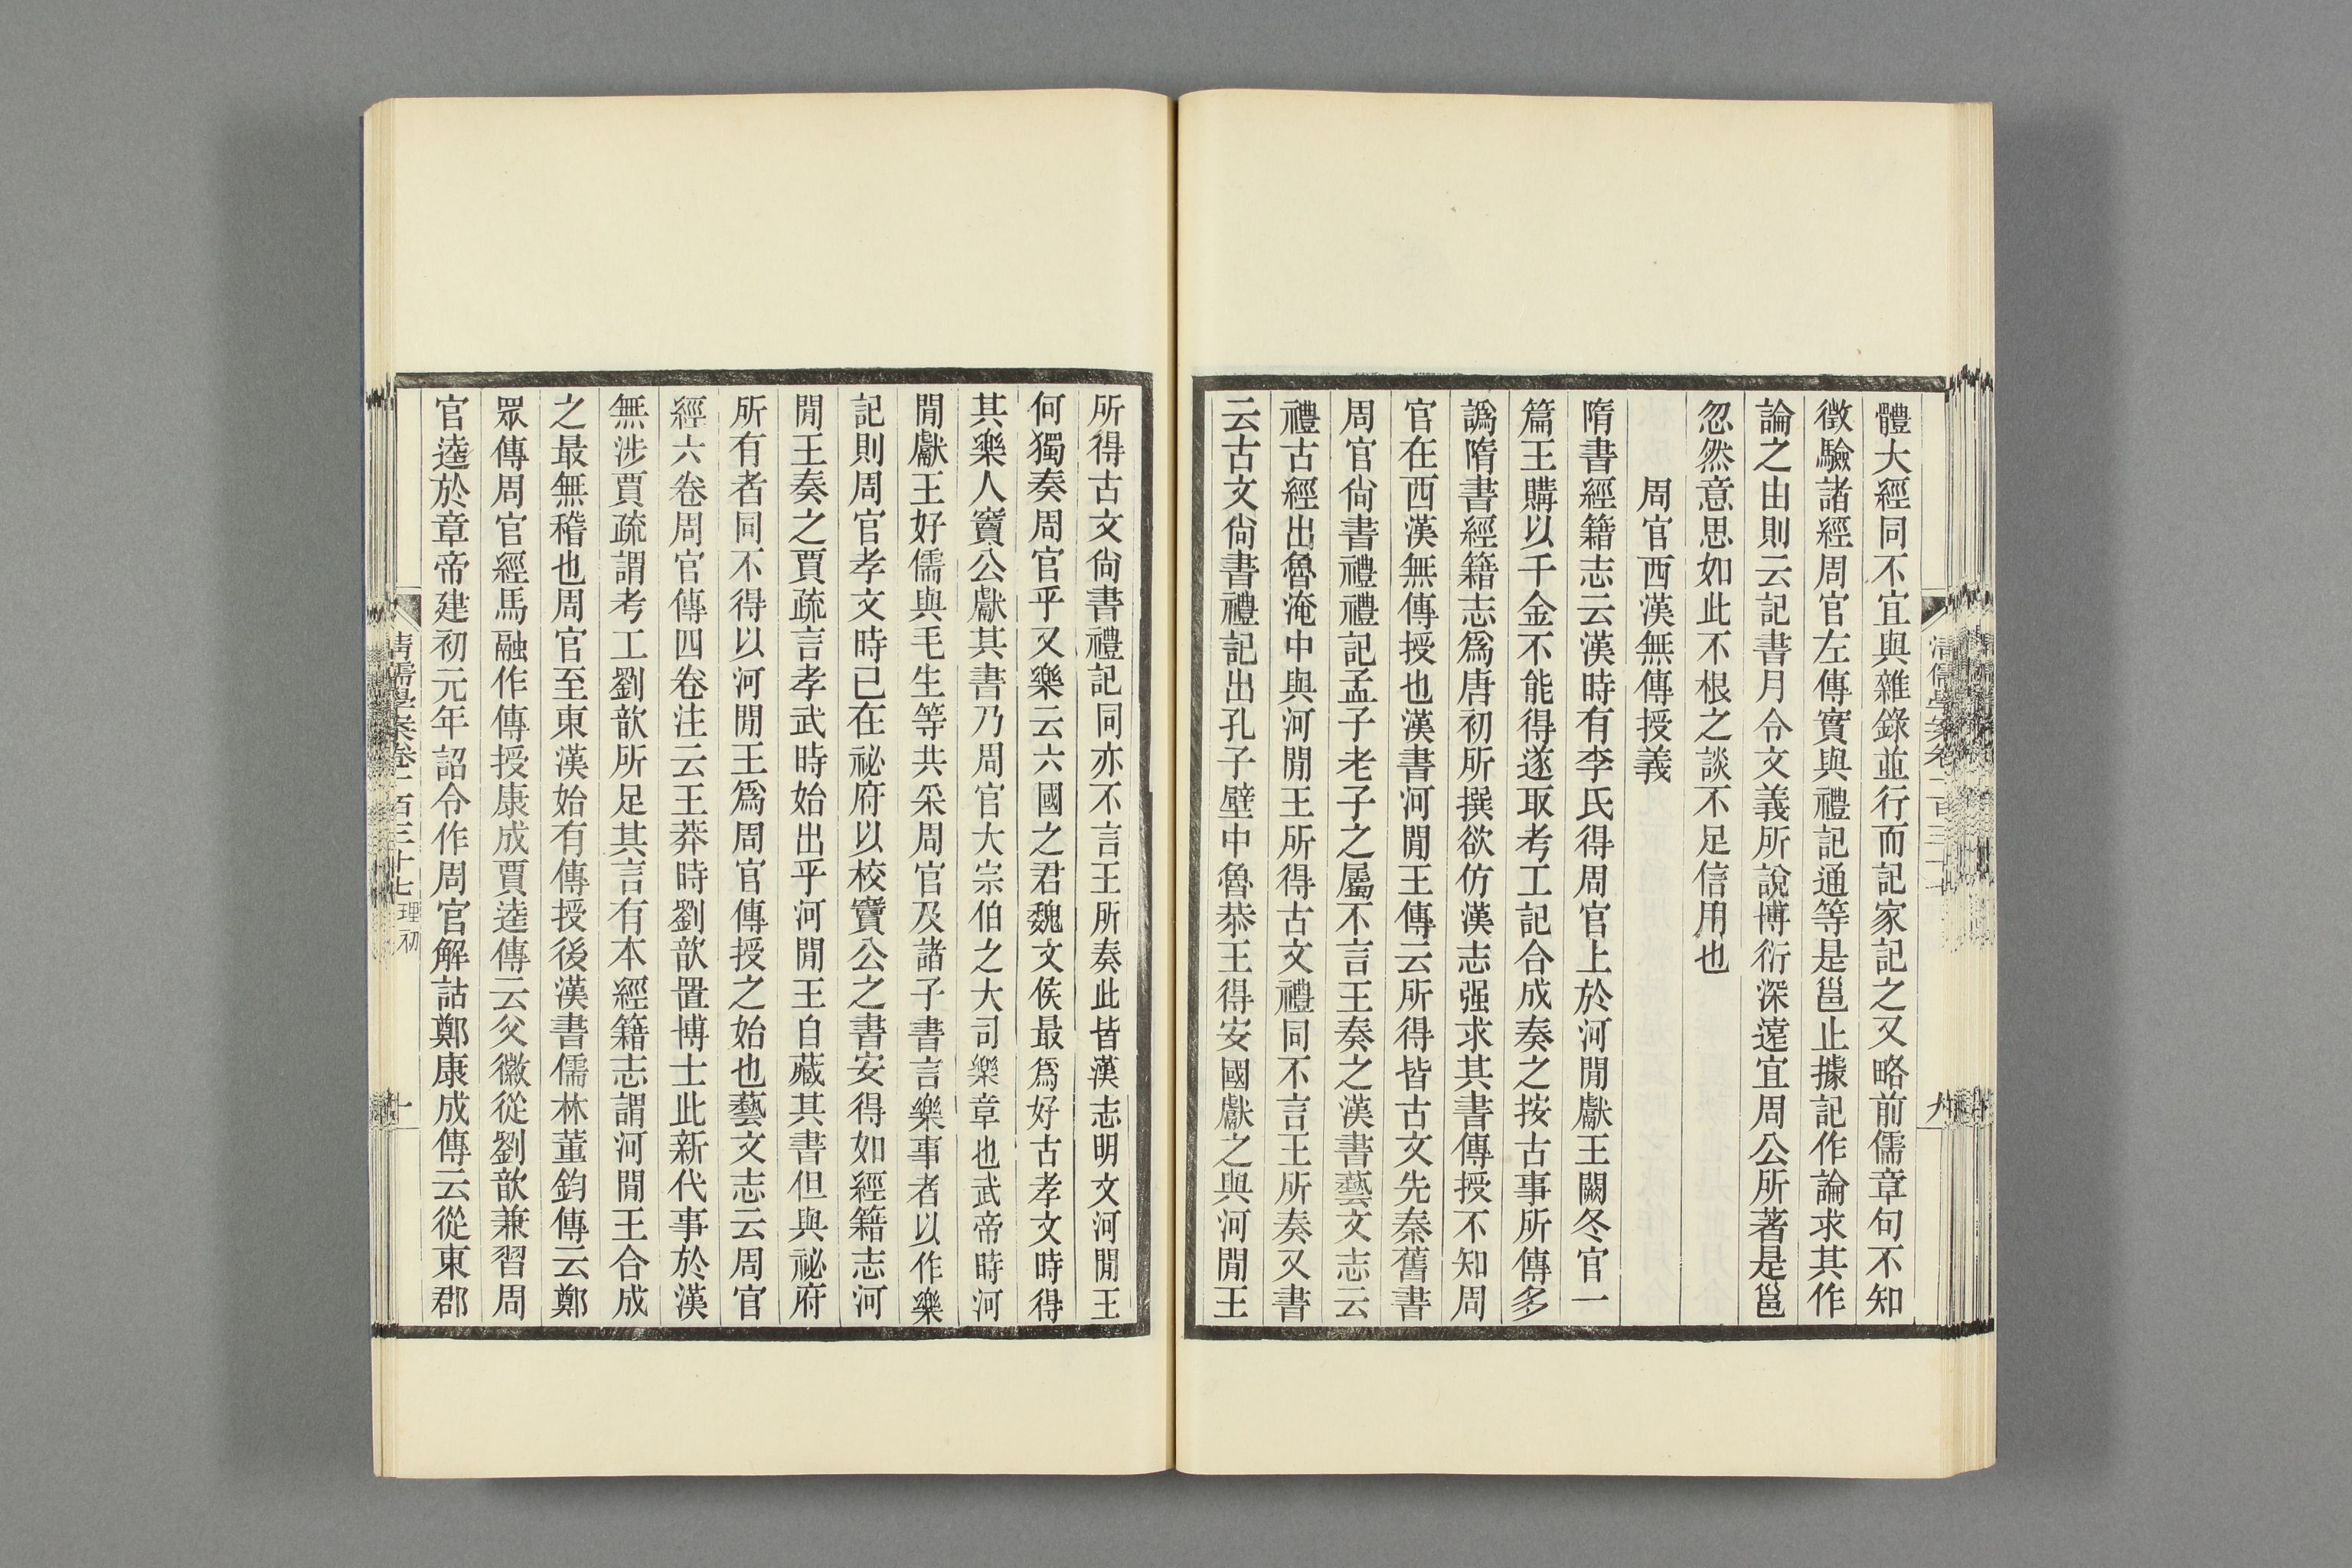 體大經同不宜與雜錄並行而記家記之又略前儒章句不知
徵驗諸經周官左傳實與禮記通等是邕止據記作論求其作
論之由則云記書月令文義所說博衍深遠宜周公所著是邕
忽然意思如此不根之談不足信用也
周官西漢無傳授義
隋書經籍志云漢時有李氏得周官上於河閒獻王闕冬官一
篇王購以千金不能得遂取考工記合成奏之按古事所傳多
譌隋書經籍志爲唐初所撰欲仿漢志强求其書傳授不知周
官在西漢無傳授也漢書河閒王傳云所得皆古文先秦舊書
周官尙書禮禮記孟子老子之屬不言王奏之漢書藝文志云
禮古經出魯淹中與河閒王所得古文禮同不言王所奏又書
云古文尙書禮記出孔子壁中魯恭王得安國獻之與河閒王
所得古文尙書禮記同亦不言王所奏此皆漢志明文河閒王
何獨奏周官乎又樂云六國之君魏文侯最爲好古孝文時得
其樂人竇公獻其書乃周官大宗伯之大司樂章也武帝時河
閒獻王好儒與毛生等共采周官及諸子書言樂事者以作樂
記則周官孝文時已在祕府以校竇公之書安得如經籍志河
閒王奏之賈疏言孝武時始出乎河閒王自藏其書但與祕府
所有者同不得以河閒王爲周官傳授之始也藝文志云周官
經六卷周官傳四卷注云王莽時劉歆置博士此新代事於漢
無涉賈疏謂考工劉歆所足其言有本經籍志謂河閒王合成
之最無稽也周官至東漢始有傳授後漢書儒林董鈞傳云鄭
眾傳周官經馬融作傳授康成賈逵傳云父徽從劉歆兼習周
官逵於章帝建初元年詔令作周官解詁鄭康成傳云從東郡
清儒學案卷一百三十七 理初